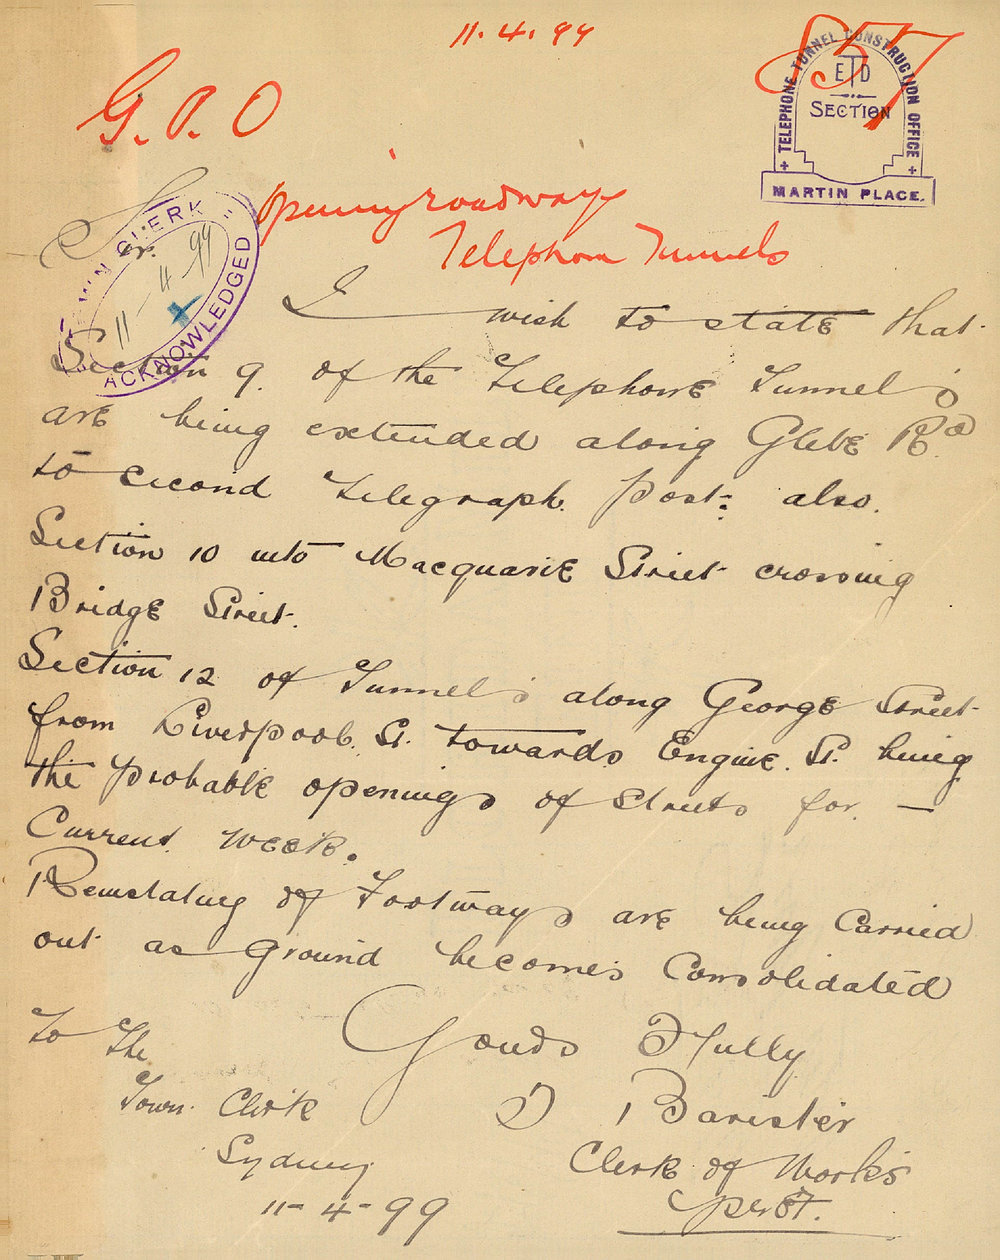 11.4.99
857
G.P.O
TELEPHONE TUNNEL CONSTRUCTION OFFICE
ETD
SECTION
MARTIN PLACE.
Opening roadways
Telephone Tunnels
CLERK
11-4-99
ACKNOWLEDGED
Sir.
I wish to state that
Section 9. of the Telephone Tunnels
are being extended along Glebe Rd.
to second Telegraph. Post: also.
Section 10 into Macquarie Street crossing
Bridge Street.
Section 12 of Tunnels along George Street
from Liverpool. St. towards Engine. St. being
the probable openings of streets for. —
Current week.
Reinstating of Footways are being Carried
out as ground becomes Consolidated
To The
Yours Fully
Town Clerk
Barister
Sydney
Clerk of Works
11-4-99